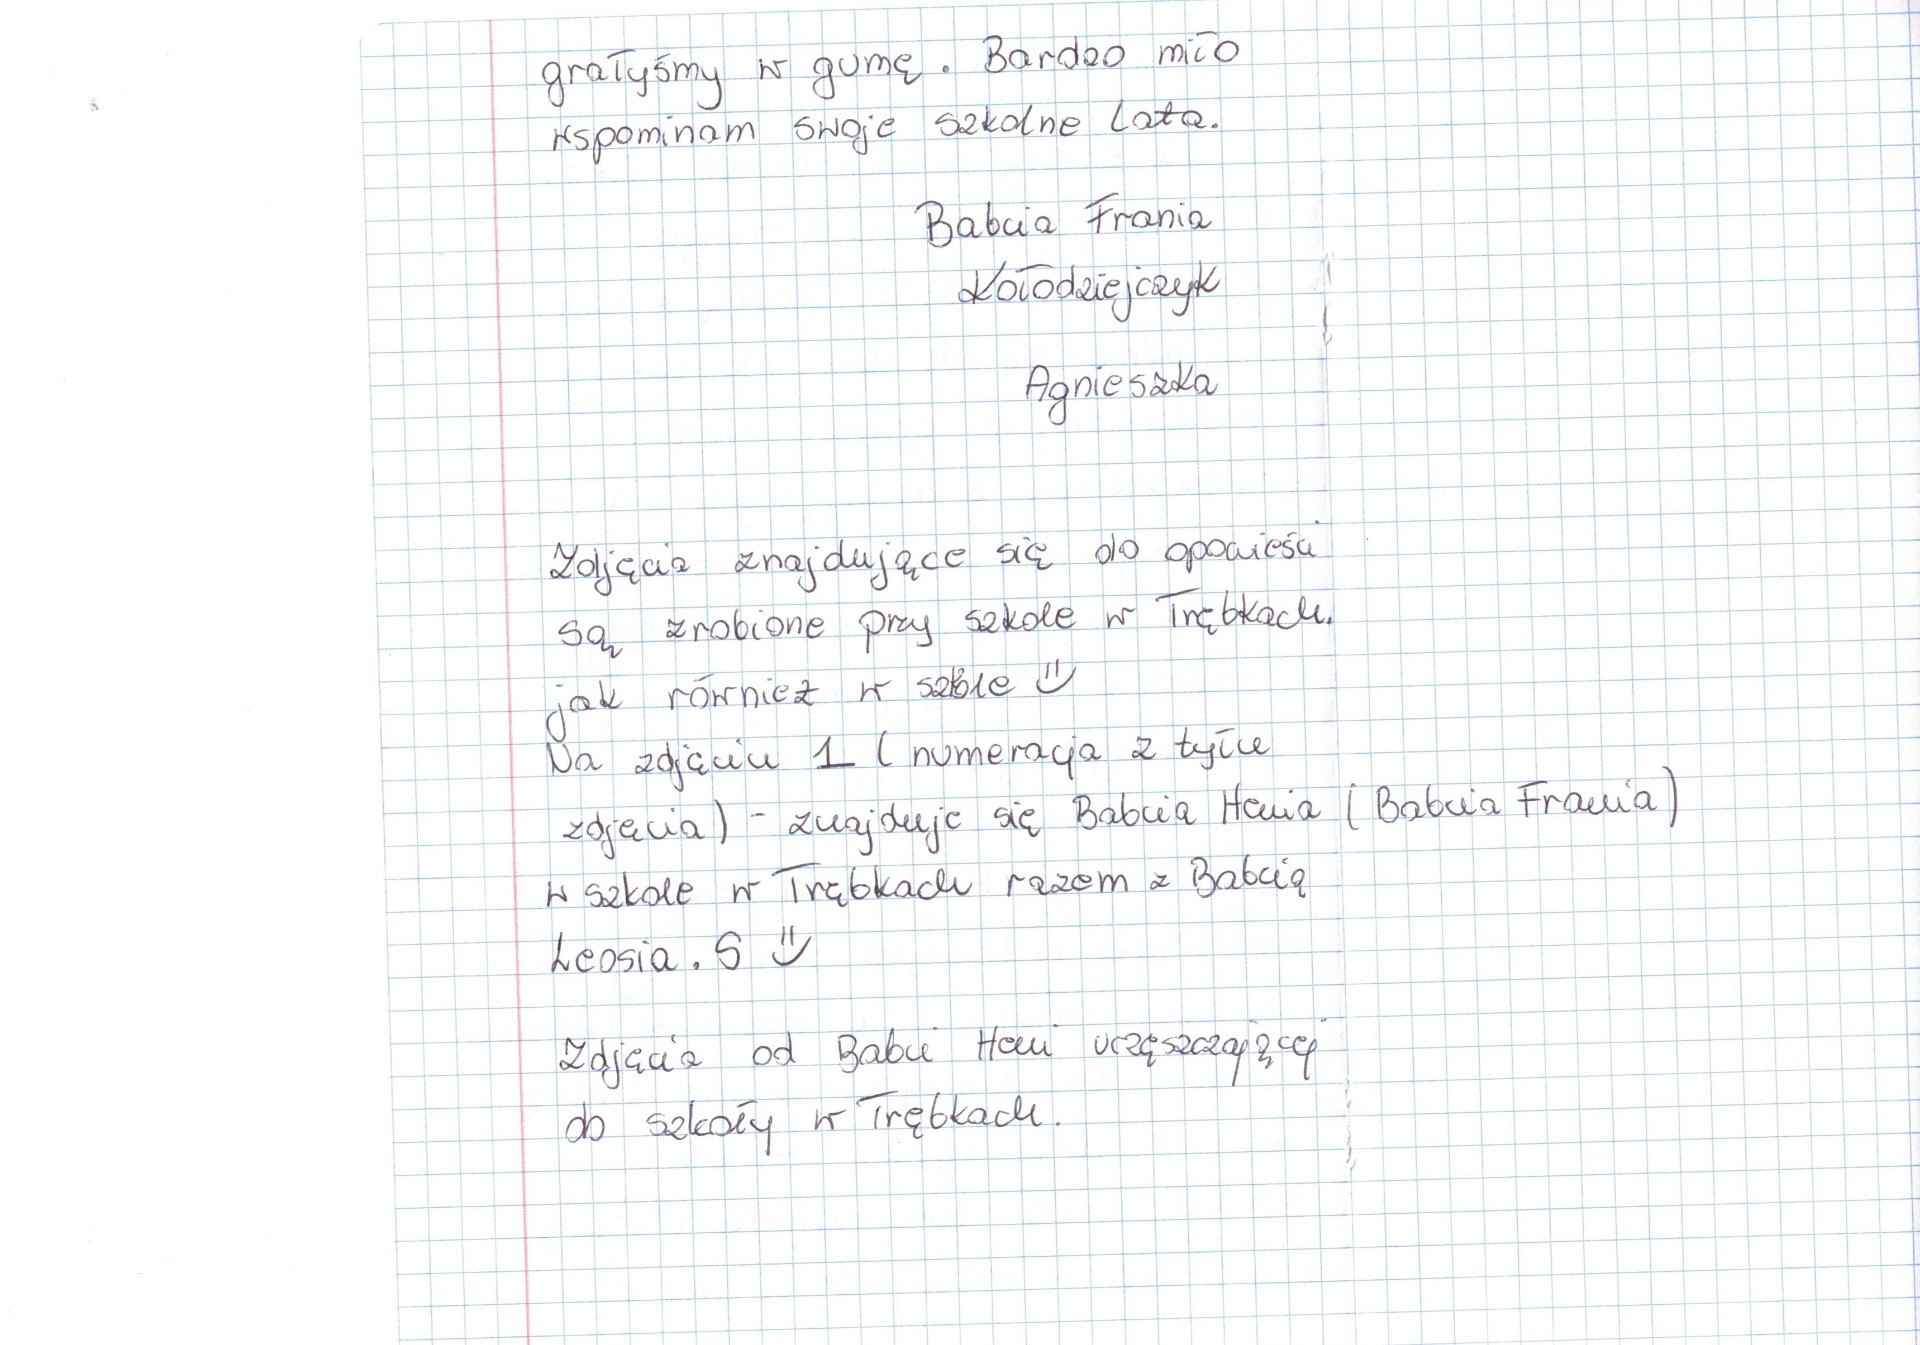 grałyśmy w gumę. Bardzo miło
wspominam swoje szkolne lata.
Babcia Frania
Kołodziejczyk
Agnieszka
Zdjęcia znajdujące się do opowieści
są zrobione przy szkole w Trębkach.
jak również w szkole
Na zdjęciu 1 (numeracja z tyłu
zdjęcia) - znajduje się Babcia Henia (Babcia Frania)
w szkole w Trębkach razem z Babcią
Leosia. S
Zdjęcia od Babci Heni uczęszczającej
do szkoły w Trębkach.